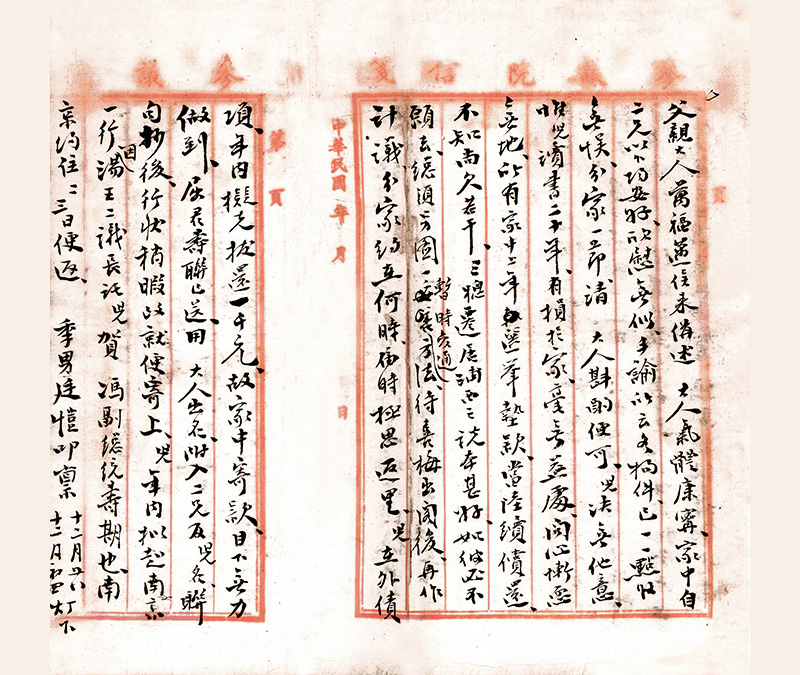 參議院信笺
父親大人萬福憑信來稱述 大人氣體康甯、家中自
二兄以下均安好、欣慰無似、手諭所云各物件、已一一點收
無悞、分家一立即請 大人斟酌便可、兒決無他意、
惟兒讀書二十年、有損於家、毫無益處、問心慚恧
無地、所有家中上年 選舉墊款、當陸續償還、
不知尚欠若干、三 遷居 之說本甚好、如彼必不
願去、總須另圖一暫時交通方法、待 梅出閣後、再作
計議、分家約在何時、屆時極思返里、兒在外債
中華民國 年 月 日
第 頁
項、年內擬先拔還一千元、故家中寄款、目下無力
做到、 屈君壽聯已送用 大人出名、附入二兄及兒名、聯
句抄後、行狀稍暇 就便寄上、兒年內擬赴南京
一行、因湯王二議長託兒賀 馮副總統壽期也、南
京約住二三日便返、 季男廷愷叩稟 十二月 灯下
參議